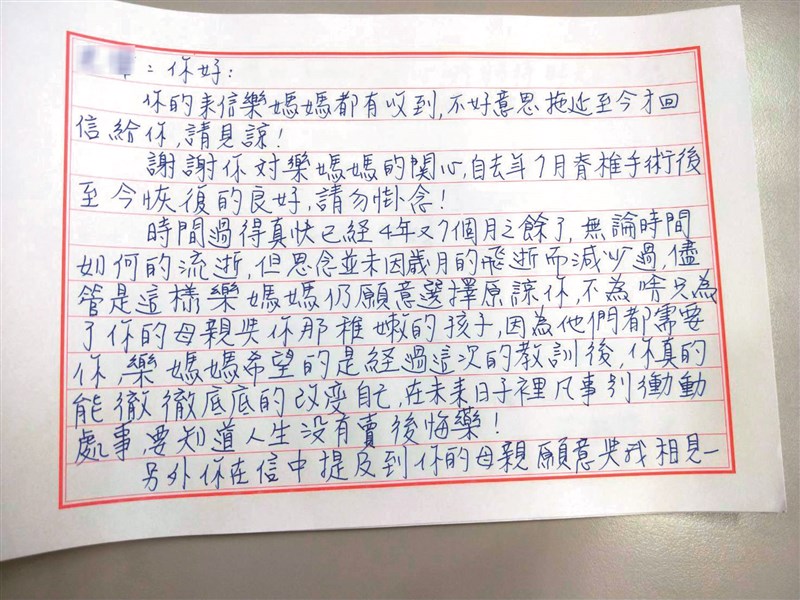 ：你好：
你的來信樂媽媽都有收到，不好意思拖延至今才回
信給你，請見諒！
謝謝你對樂媽媽的関心，自去年7月脊椎手術後
至今恢復的良好，請勿掛念！
時間過得真快已經4年又7個月之餘了，無論時間
如何的流逝，但思念並未因歲月的飛逝而減少過，儘
管是這樣樂媽媽仍願意選擇原諒你，不為啥只為
了你的母親與你那稚嫩的孩子，因為他們都需要
你，樂媽媽希望的是經過這次的教訓後，你真的
能徹徹底底的改变自己，在未來日子裡凡事別衝動
處事，要知道人生没有賣後悔藥！
另外你在信中提及到你的母親願意與我相見一